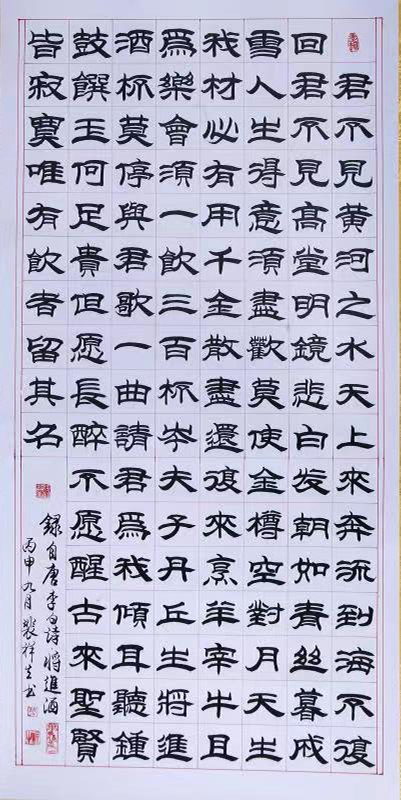 君不見黄河之水天上來奔流到海不復
回君不見髙堂明鏡悲白发朝如青丝暮成
雪人生得意須盡歡莫使金樽空對月天生
我材必有用千金散盡還復來烹羊宰牛且
爲樂會須一飲三百杯岑夫子丹丘生將進
酒杯莫停與君歌一曲請君爲我傾耳聽鍾
鼓饌玉何足貴但愿長醉不愿醒古來聖賢
皆寂寞唯有飲者留其名
録自唐李白诗將進酒
丙申九月裴祥书